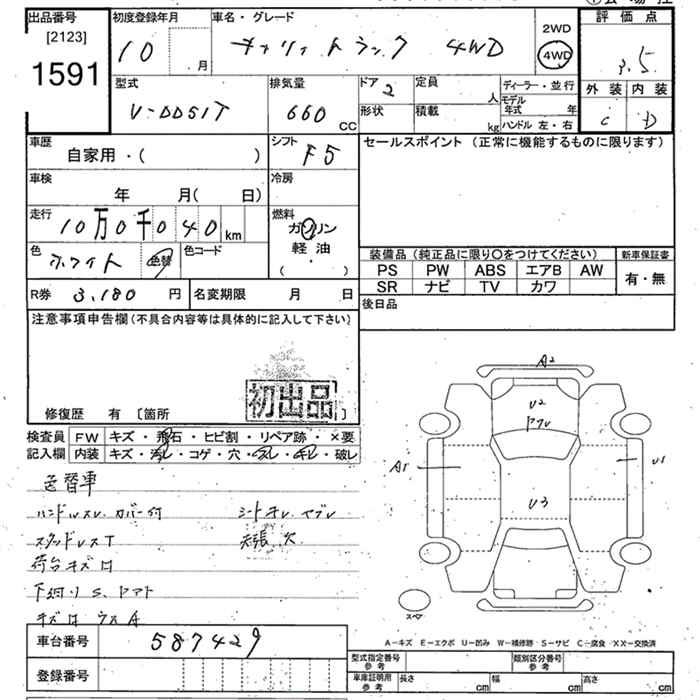 出品番号 初度登録年月 車名・グレード 評価点
[2123] 10 月 キャリィ トラック 4WD 2WD 4WD 3.5
1591 外装 内装
型式 排気量 ドア 定員 ディーラー・並行
V-DD51T 660 cc 2 人 モデル年式 年 C D
形状 積載 kg ハンドル 左・右
車歴 シフト セールスポイント (正常に機能するものに限ります)
自家用・( ) F5
車検 冷房
年 月( 日)
走行 燃料
10万0千040km ガソリン
軽油
( ・ )
色 色コード
ホワイト 色替
装備品(純正品に限り○をつけてください) 新車保証書
PS PW ABS エアB AW 有・無
SR ナビ TV カワ
R券 3,180 円 名変期限 月 日 後日品
注意事項申告欄(不具合内容等は具体的に記入して下さい)
初出品
修復歴 有 [箇所 ]
検査員 FW キズ・飛石・ヒビ割・リペア跡・×要
記入欄 内装 キズ・汚レ・コゲ・穴・・破レ
A2
U2
A1 U1
U3
色替車
ハンドルスレ カバー付 シートキレ ヤブレ
スタッドレスT 天張 欠
荷台キズ凹
下廻り S.
キズ凹 ウスA
スペア
A−キズ E−エクボ U−凹み W−補修跡 S−サビ C−腐食 ××−交換済
車台番号 587429
型式指定番号 参考 類別区分番号 参考
登録番号 車庫証明用 参考 長さ cm 幅 cm 高さ cm